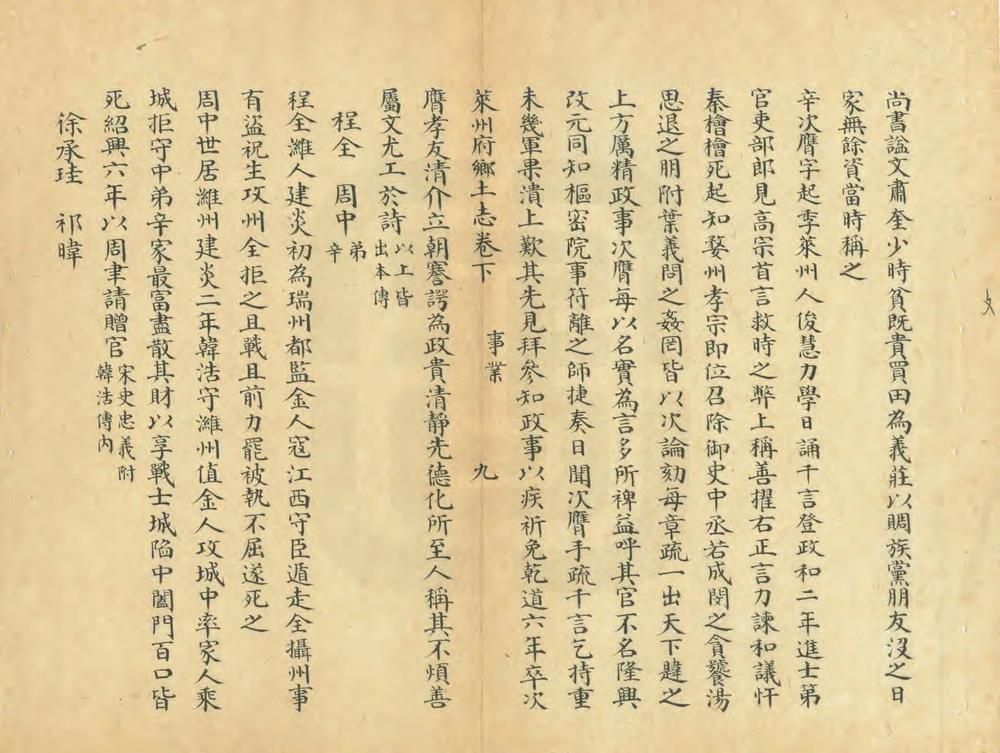 尚書諡文肅奎少時貧既貴買田為義莊以賙族黨朋友沒之日
家無餘資當時稱之
辛次膺字起季萊州人俊慧力學日誦千言登政和二年進士第
官吏部郎見高宗首言救時之弊上稱善擢右正言力諫和議忤
秦檜檜死起知婺州孝宗即位召除御史中丞若成閔之貪饕湯
思退之朋附葉義問之姦罔皆以次論劾每章疏一出天下韙之
上方厲精政事次膺每以名實為言多所裨益呼其官不名隆興
改元同知樞密院事符離之師捷奏日聞次膺手疏千言乞持重
未幾軍果潰上歎其先見拜參知政事以疾祈免乾道六年卒次
萊州府鄉土志卷下 事業 九
膺孝友清介立朝謇諤為政貴清靜先德化所至人稱其不煩善
屬文尤工於詩以上皆出本傳
程全 周中弟辛
程全濰人建炎初為瑞州都監金人寇江西守臣遁走全攝州事
有盜祝生攻州全拒之且戰且前力罷被執不屈遂死之
周中世居濰州建炎二年韓浩守濰州值金人攻城中率家人乘
城拒守中弟辛家最富盡散其財以享戰士城陷中闔門百口皆
死紹興六年以周聿請贈官宋史忠義附韓浩傳內
徐承珪 祁暐